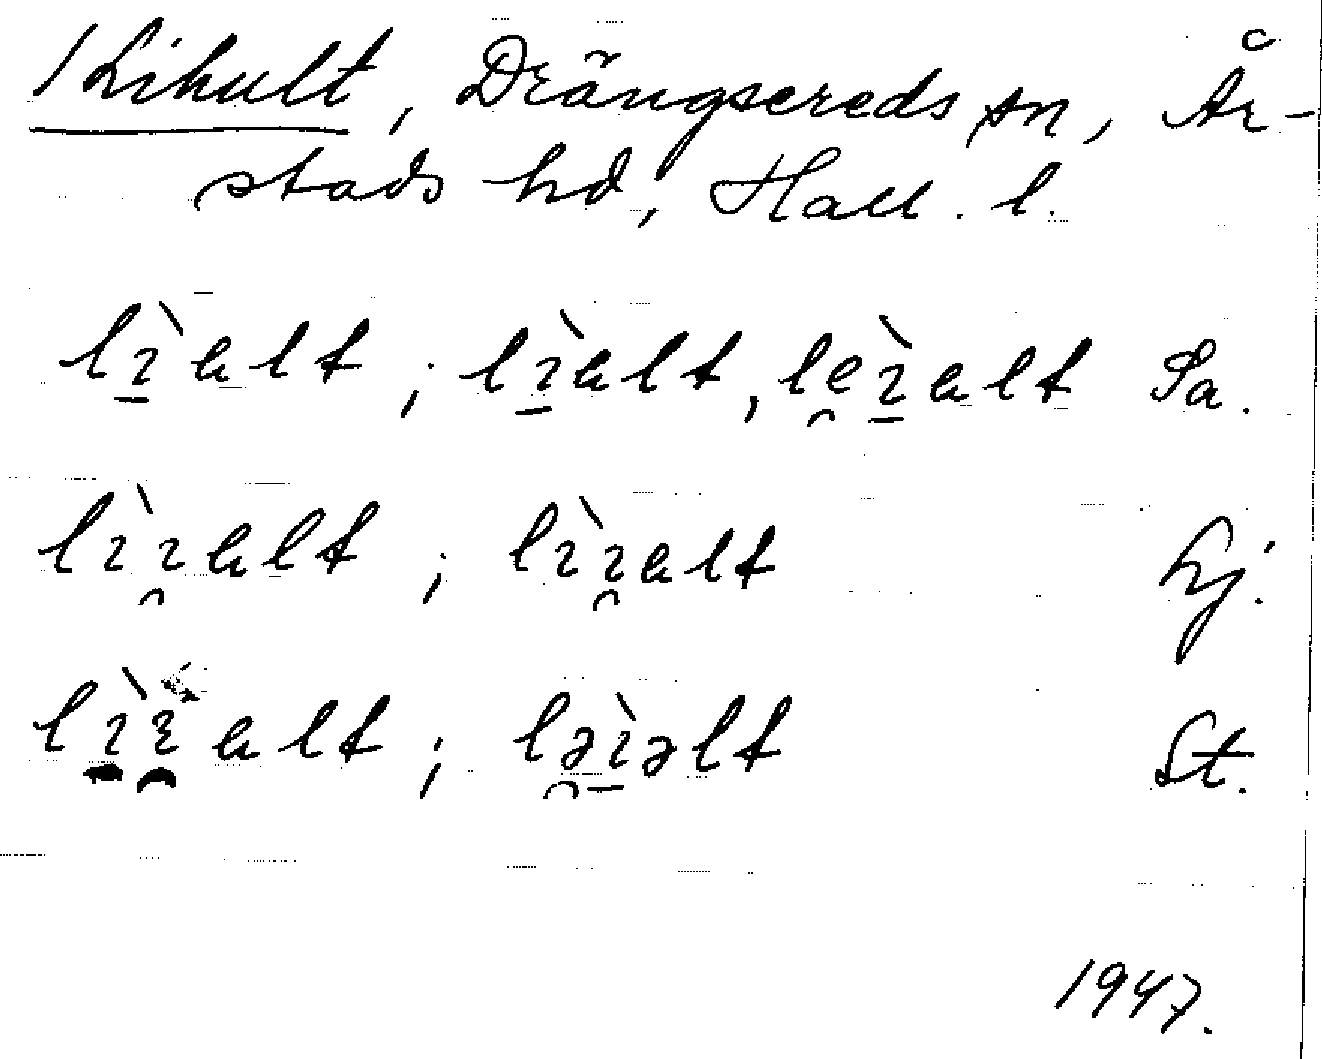 /Lihult, Drängsereds sn, År-
stads hd, Hall. l.
lı̱̀alt; lı̱̀alt, le̯ı̱̀alt Sa.
lıı̯̀alt; lıı̯̀alt Lj.
lı̱̀ı̯alt; lə̯ı̱̀əlt St.
1947.